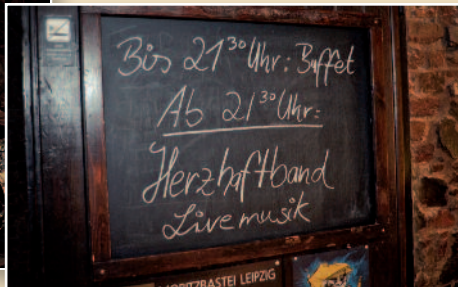 Bis 21³⁰ Uhr: Buffet
Ab 21³⁰ Uhr:
Herzhaftband
Livemusik
MORITZBASTEI LEIPZIG